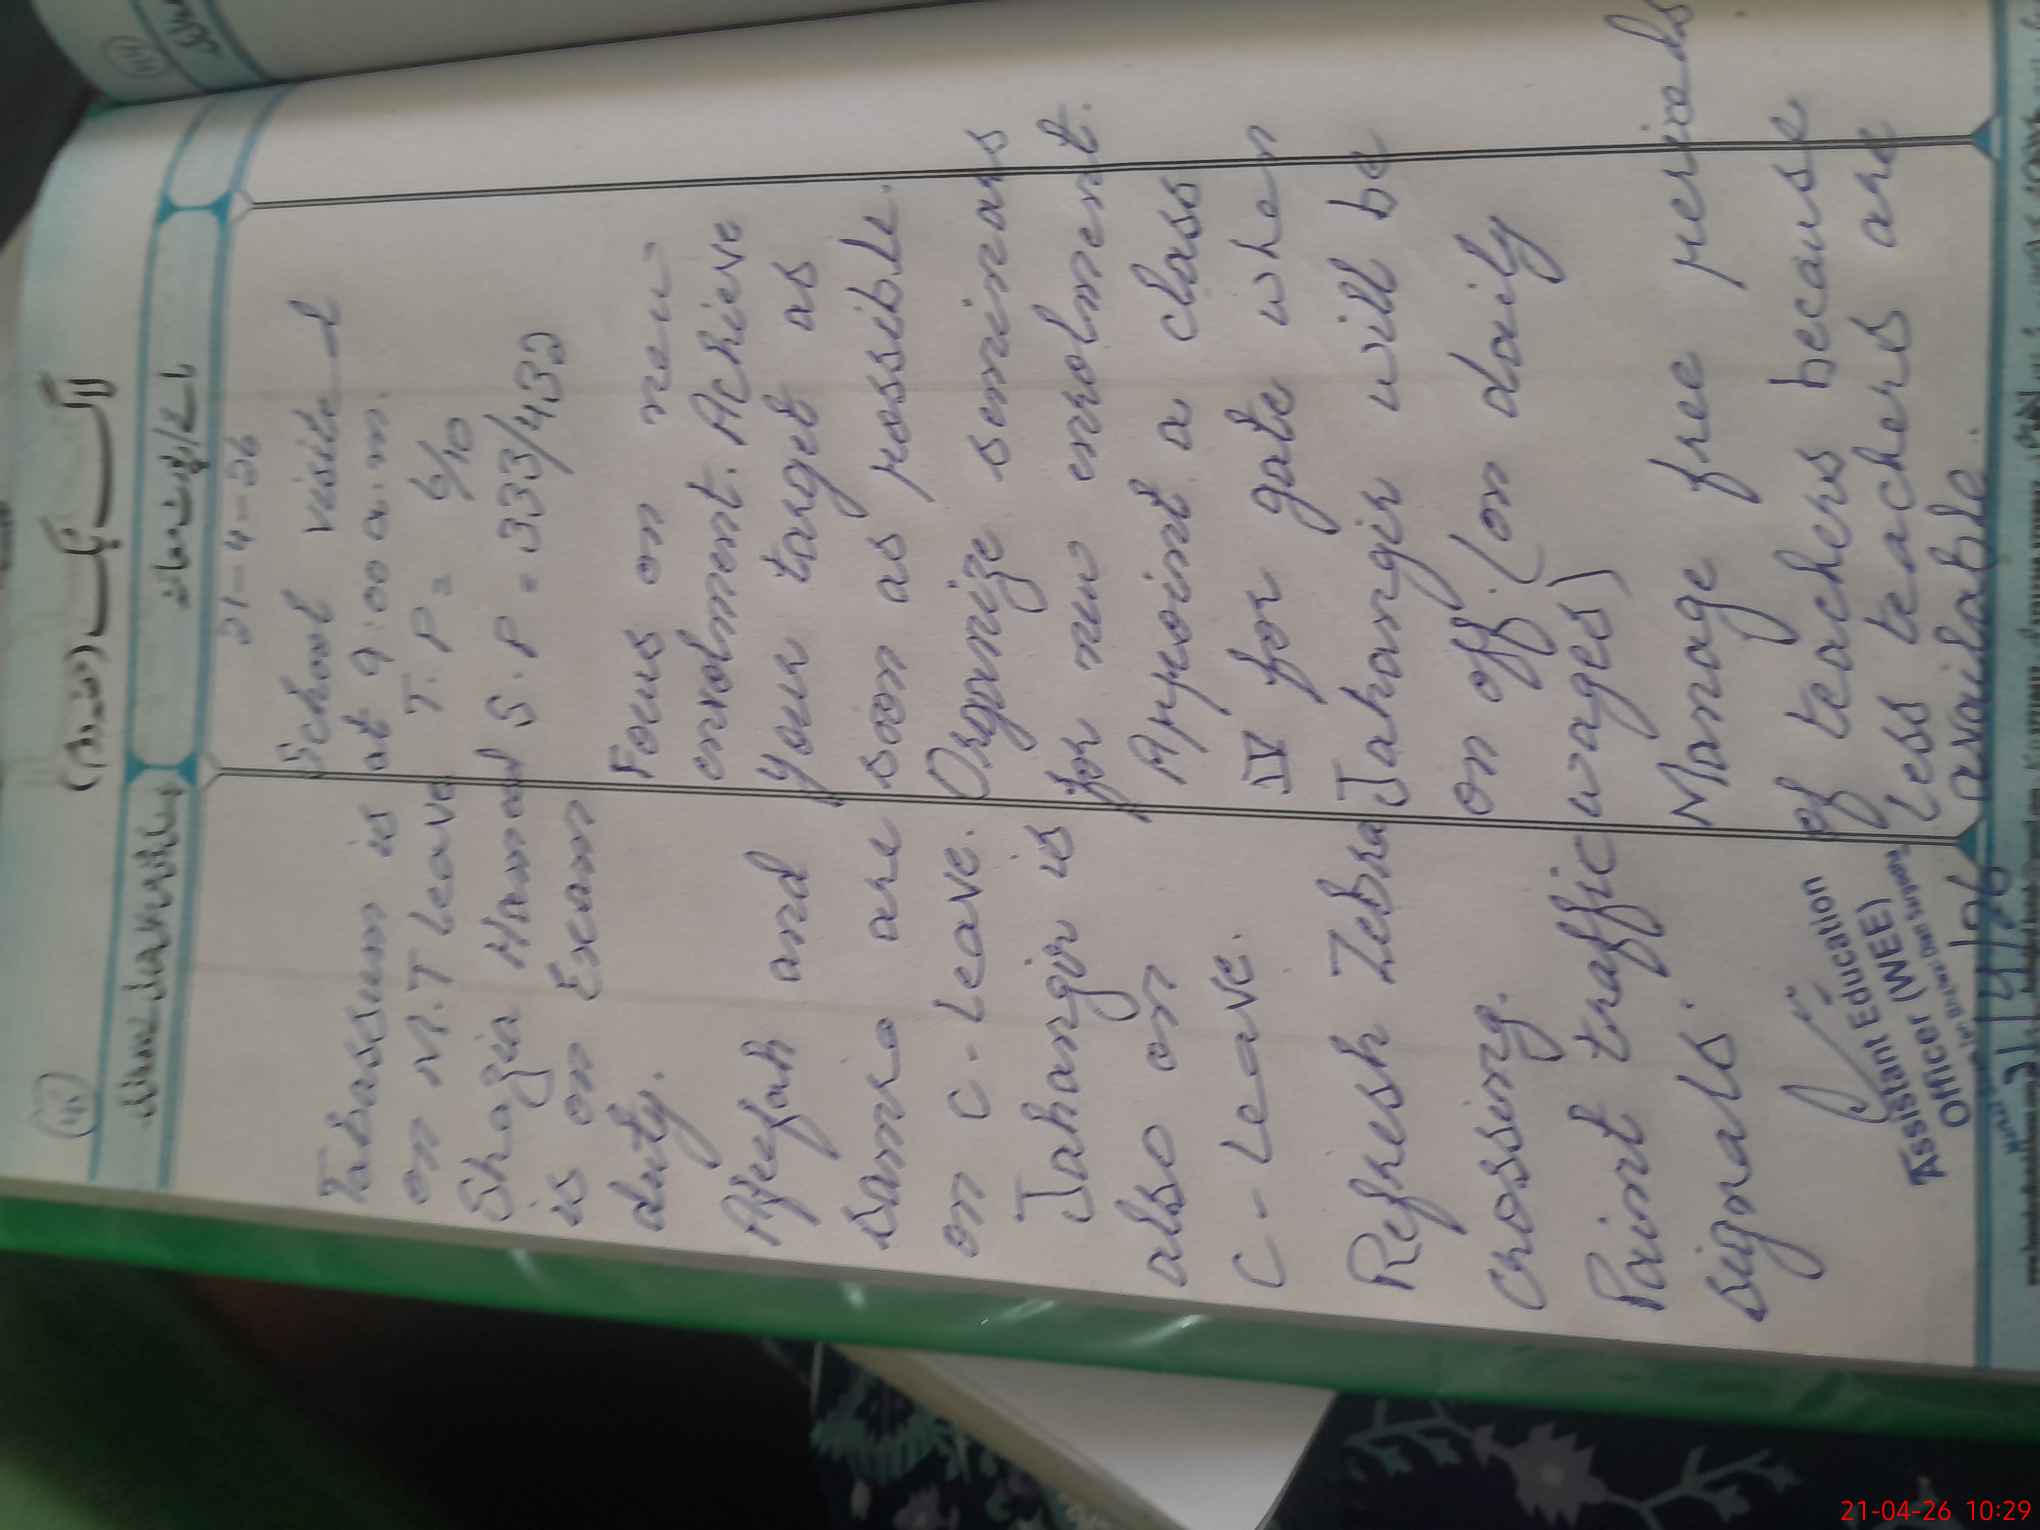 لاگ بک (مدرسہ)
21-4-26
School visited
at 9:00 a.m.
T.P = 6/10
S.P = 333/432
Focus on new
enrolment. Achieve
your target as
soon as possible.
Organize seminars
for new enrolment.
Appoint a class
IV for gate when
Jahangir will be
on off. (on daily
wages)
Manage free periods
of teachers because
less teachers are
available.
Tabassum is
on M.T leave
Shazia Hameed
is on Exam
duty.
Afefah and
samra are
on C-Leave.
Jahangir is
also on
C-Leave.
Refresh Zebra
crossing.
Paint traffic
signals.
Assistant Education
Officer (WEE)
21/4/26
21-04-26 10:29